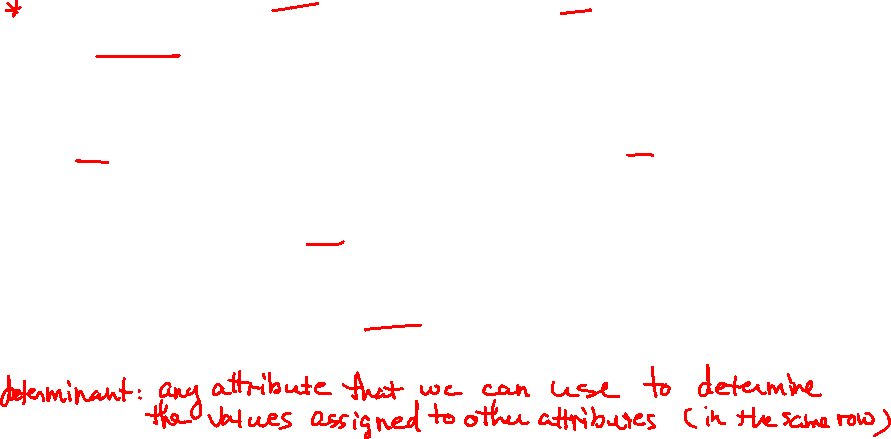 *
determinant: any attribute that we can use to determine
the values assigned to other attribures (in the same row)